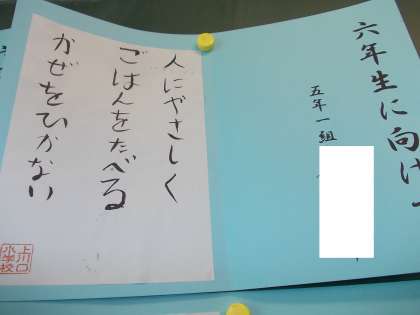 六年生に向けて
五年一組
人にやさしく
ごはんをたべる
かぜをひかない
上川口
小学校